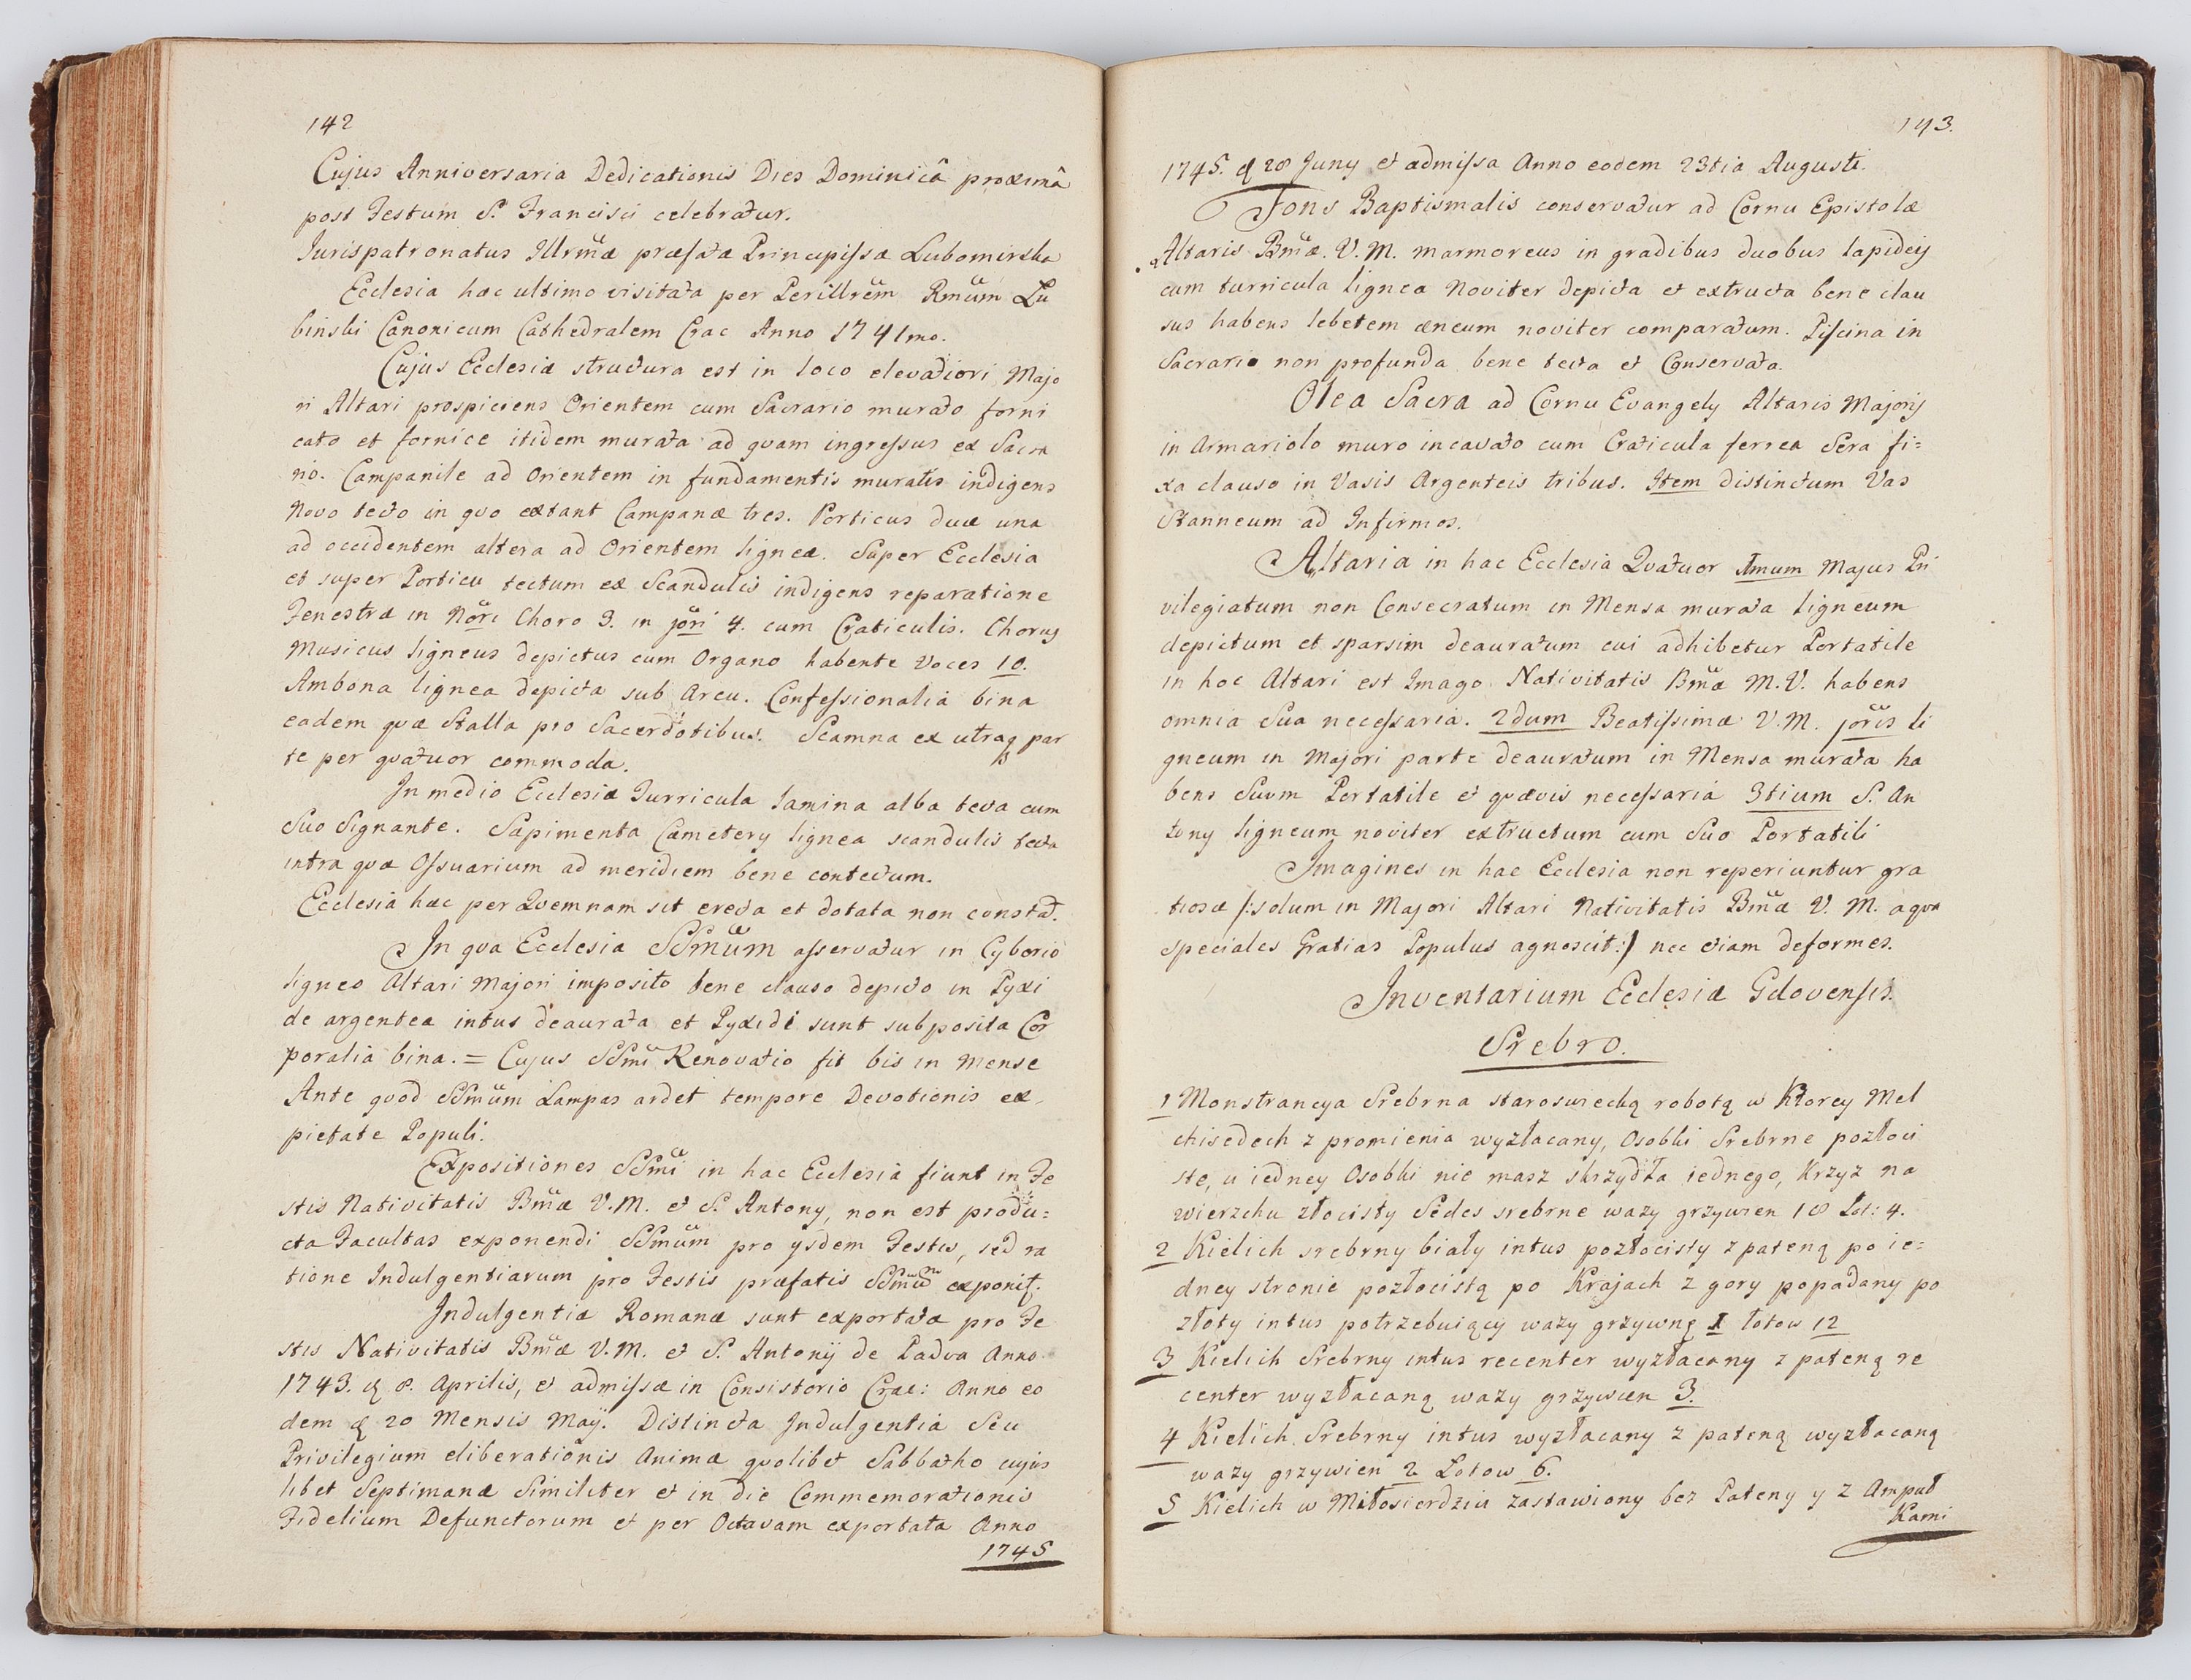 142
Cujus Anniversaria Dedicationis Dies Dominicâ proximâ
post Festum S. Francisci celebratur.
Jurispatronatus Illrmæ præfatæ Principissæ Lubomirska
Ecclesia hæc ultimo visitata per Perillrem Rmum Łu
binski Canonicum Cathedralem Crac Anno 1741mo.
Cujus Ecclesiæ structura est in loco elevatiori Majo
ri Altari prospiciens Orientem cum Sacrario murato forni
cato et fornice itidem murata ad quam ingressus ex Sacra
rio. Campanile ad Orientem in fundamentis muratis indigens
Novo tecto in quo extant Campanæ tres. Porticus duæ una
ad occidentem altera ad Orientem ligneæ. Super Ecclesia
et super Porticu tectum ex Scandulis indigens reparatione
Fenestræ in Nori Choro 3. in jori 4. cum Craticulis. Chorus
Musicus ligneus depictus cum Organo habente Voces 10.
Ambona lignea depicta sub Arcu. Confessionalia bina
eadem quæ Stalla pro Sacerdotibus. Scamna ex utraq par
te per quatuor commoda.
In medio Ecclesiæ Turricula lamina alba tecta cum
Suo Signante. Sapimenta Cæmetery lignea scandulis tecta
intra quæ Ossuarium ad meridiem bene contectum.
Ecclesia hæc per Quemnam sit erecta et dotata non constat.
In qua Ecclesia SSmum asservatur in Cyborio
ligneo Altari Majori imposito bene clauso depicto in Pyxi
de argentea intus deaurata et Pyxidi sunt subposita Cor
poralia bina. = Cujus SSmi Renovatio fit bis in mense
Ante quod SSmum Lampas ardet tempore Devotionis ex
pietate Populi.
Expositiones SSmi in hac Ecclesia fiunt in Fe
stis Nativitatis Bmæ V.M. et S. Antony, non est produ=
cta Facultas exponendi SSmum pro ysdem Festis, sed ra
tione Indulgentiarum pro Festis præfatis SSmum exponit.
Indulgentiæ Romanæ sunt exportatæ pro Fe
stis Nativitatis Bmæ V.M. et S. Antonij de Padva Anno
1743. d 8. Aprilis, et admissæ in Consistorio Crac: Anno eo
dem d 20 Mensis Maÿ. Distincta Indulgentia Seu
Privilegium eliberationis Animæ quolibet Sabbatho cujus
libet Septimanæ Similiter et in die Commemorationis
Fidelium Defunctorum et per Octavam exportata Anno
1745
143.
1745. d 28 Juny et admissa Anno eodem 23tia Augusti.
Fons Baptismalis conservatur ad Cornu Epistolæ
Altaris Bmæ. V.M. marmoreus in gradibus duobus lapideis
cum turricula lignea Noviter depicta et extructa bene clau
sus habens lebetem æneum noviter comparatum. Piscina in
Sacrario non profunda bene tecta et Conservata.
Olea Sacra ad Cornu Evangely Altaris Majoris
in Armariolo muro incavato cum Craticula ferrea Sera fi=
xa clauso in Vasis Argenteis tribus. Item distinctum Vas
Stanneum ad Infirmos.
Altaria in hac Ecclesia Quatuor 1mum Majus Pri
vilegiatum non Consecratum in Mensa murata ligneum
depictum et sparsim deauratum cui adhibetur Portatile
in hoc Altari est Imago Nativitatis Bmæ M.V. habens
omnia Sua necessaria. 2dum Beatissimæ V.M. joris li
gneum in Majori parte deauratum in Mensa murata ha
bens Suum Portatile et quævis necessaria 3tium S. An
tony ligneum noviter extructum cum Suo Portatili
Imagines in hac Ecclesia non reperiuntur gra
tiosæ /: solum in Majori Altari Nativitatis Bmæ V. M. a qua
speciales Gratias Populus agnoscit :/ nec etiam deformes.
Inventarium Ecclesiæ Gdovensis.
Srebro.
1 Monstrancya Srebrna staroswiecką robotą w Ktorey Mel
chisedech z promienia wyzłacany, Osobki Srebrne pozłoci
ste, u iedney Osobki nie masz skrzydła iednego, Krzyz na
wierzchu złocisty Sedes srebrne wazy grzywien 18 Lot: 4.
2 Kielich srebrny biały intus pozłocisty z pateną po ie=
dney stronie pozłocistą po Krajach z gory popadany po
złoty intus potrzebuiący wazy grzywnę 1 łotow 12
3 Kielich Srebrny intus recenter wyzłacany z pateną re
center wyzłacaną wazy grzywien 3.
4 Kielich Srebrny intus wyzłacany z pateną wyzłacaną
wazy grzywien 2 Lotow 6.
5 Kielich w Miłosierdziu zastawiony bez Pateny y z Ampuł
Kami